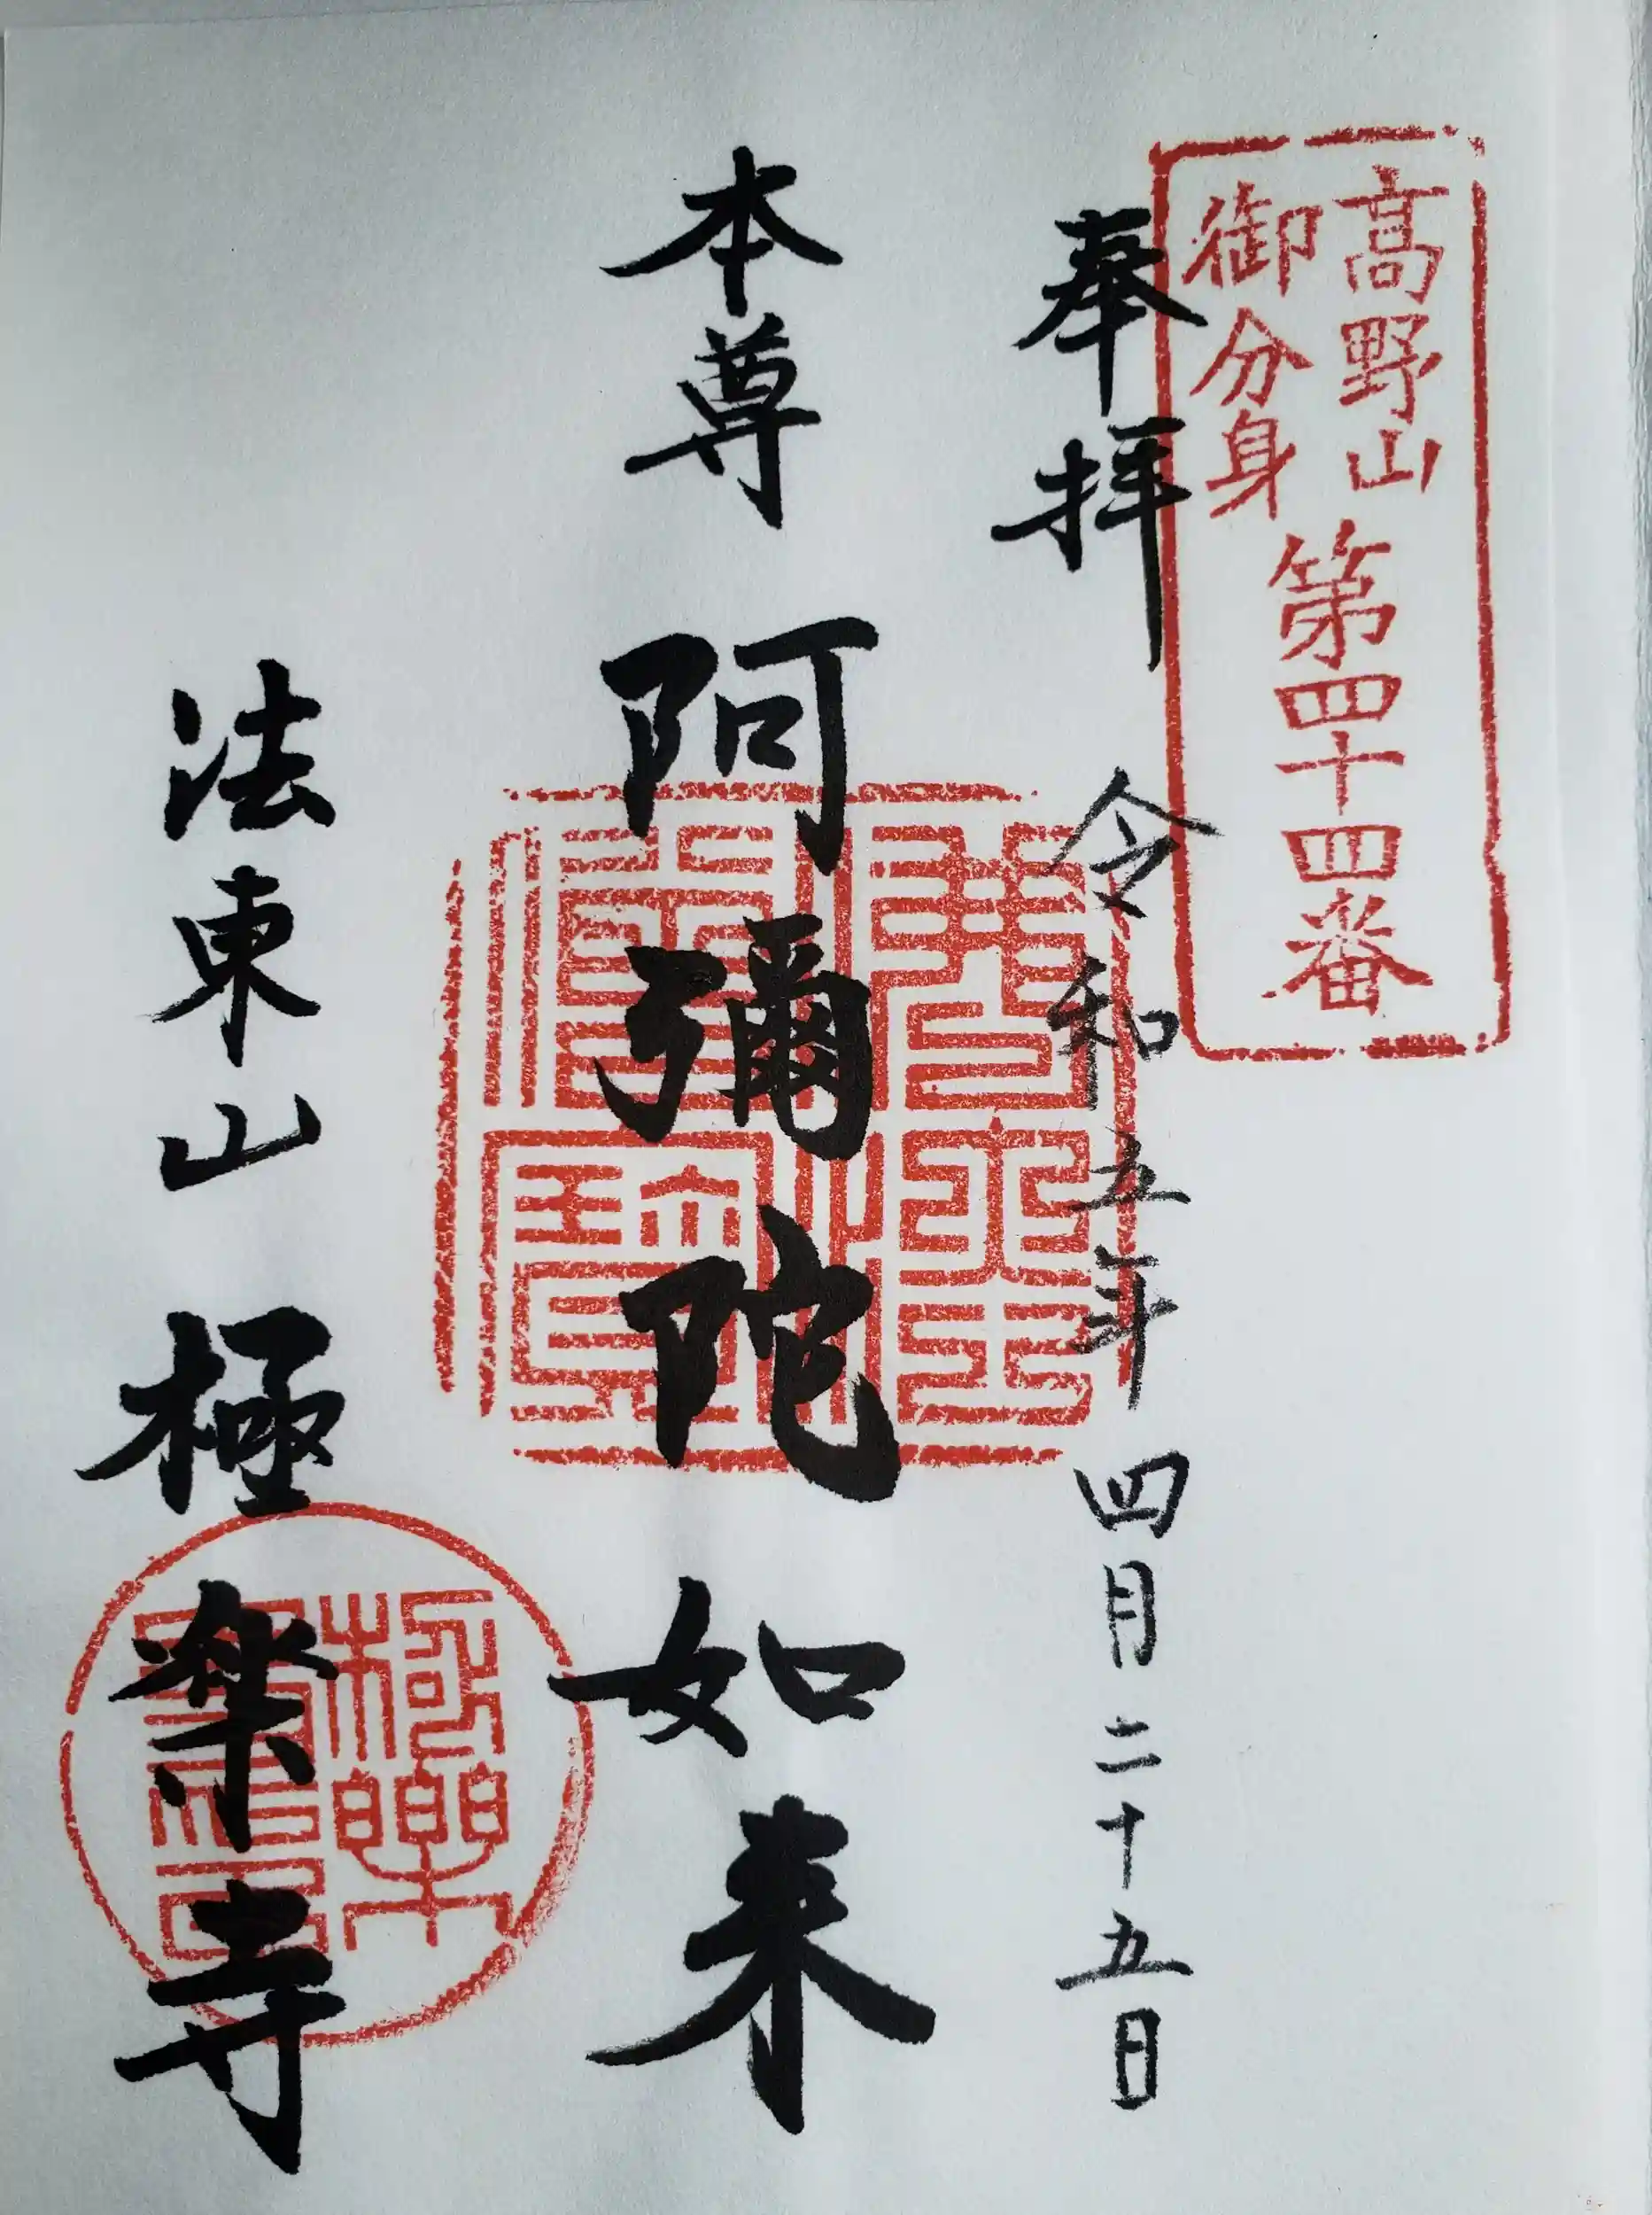 高野山
御分身
第四十四番
奉拝 令和五年四月二十五日
本尊 阿彌陀如来
法東山 極楽寺
極樂